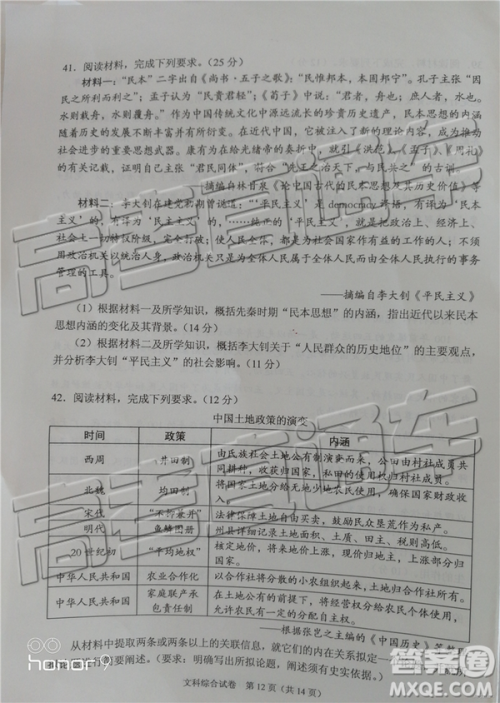 41. 阅读材料，完成下列要求。（25 分）
材料一：“民本”二字出自《尚书·五子之歌》：“民惟邦本，本固邦宁”。孔子主张“因
民之所利而利之”；孟子认为“民贵君轻”；《荀子》中说：“君者，舟也；庶人者，水也。
水则载舟，水则覆舟。”作为中国传统文化中源远流长的珍贵历史遗产，民本思想的内涵
随着历史的发展不断丰富并有所转变。在近代中国，它被注入了新的元素，成为推动
社会变革的重要思想武器。康有为在给光绪的奏折中，就引《洪范》、《孟子》、《周礼》
的有关记载，证明自己主张“君民同体”，符合“先王之治天下，与民共之”的古训。
——摘编自林甘泉《论中国古代的民本思想及历史价值》等
材料二：李大钊在建党初期曾说道：“‘平民主义’是 democracy 译语，有译为‘民本
主义’的，有译为‘民主主义’的，……纯正的‘平民主义’，就是把政治上、经济上、
社会上一切特权阶级，完全打破；使人民全体，都是为社会国家作有益的工作的人；不须
用政治机关以统治人身，政治机关只是为全体人民属于全体人民而由全体人民执行的事务
管理的工具。
——摘编自李大钊《平民主义》
（1）根据材料一及所学知识，概括先秦时期“民本思想”的内涵，指出近代以来民本
思想内涵的变化及其背景。（14 分）
（2）根据材料二及所学知识，概括李大钊关于“人民群众的历史地位”的主要观点，
并分析李大钊“平民主义”的社会影响。（11 分）
42. 阅读材料，完成下列要求。（12 分）
中国土地政策的演变
时间 政策 内涵
西周 井田制 由氏族社会土地公有制演变而来，公田由村社成员共
同耕种，收获归国家，私田的使用权归村社成员。
北魏 均田制 将国家土地分给无地少地农民使用，确保国家财政收
入。
宋代 “不抑兼并” 法律保障土地自由买卖，鼓励民众垦荒作为私田。
明代 鱼鳞图册 州县详细记录土地面积、土质、田主、税则高低。
20 世纪初 “平均地权” 核定地价，将来地价上涨，现价归地主，上涨部分归
国家。
中华人民共和国 农业合作化 以合作社将分散的小农组织起来，土地归合作社所有。
中华人民共和国 家庭联产承
包责任制 在土地公有的前提下，将经营权分给农民个体使用，
允许农民有一定的分配自主权。
——根据张岂之主编的《中国历史》
从材料中提取两条或两条以上的关联信息，就它们的内在关系拟定一
要阐述。（要求：明确写出所拟论题，阐述须有史实依据。）
文科综合试卷 第 12 页（共 14 页）
高考直通车
高考直通车
高考直通车
honor 9
答案圈
MXQE.COM